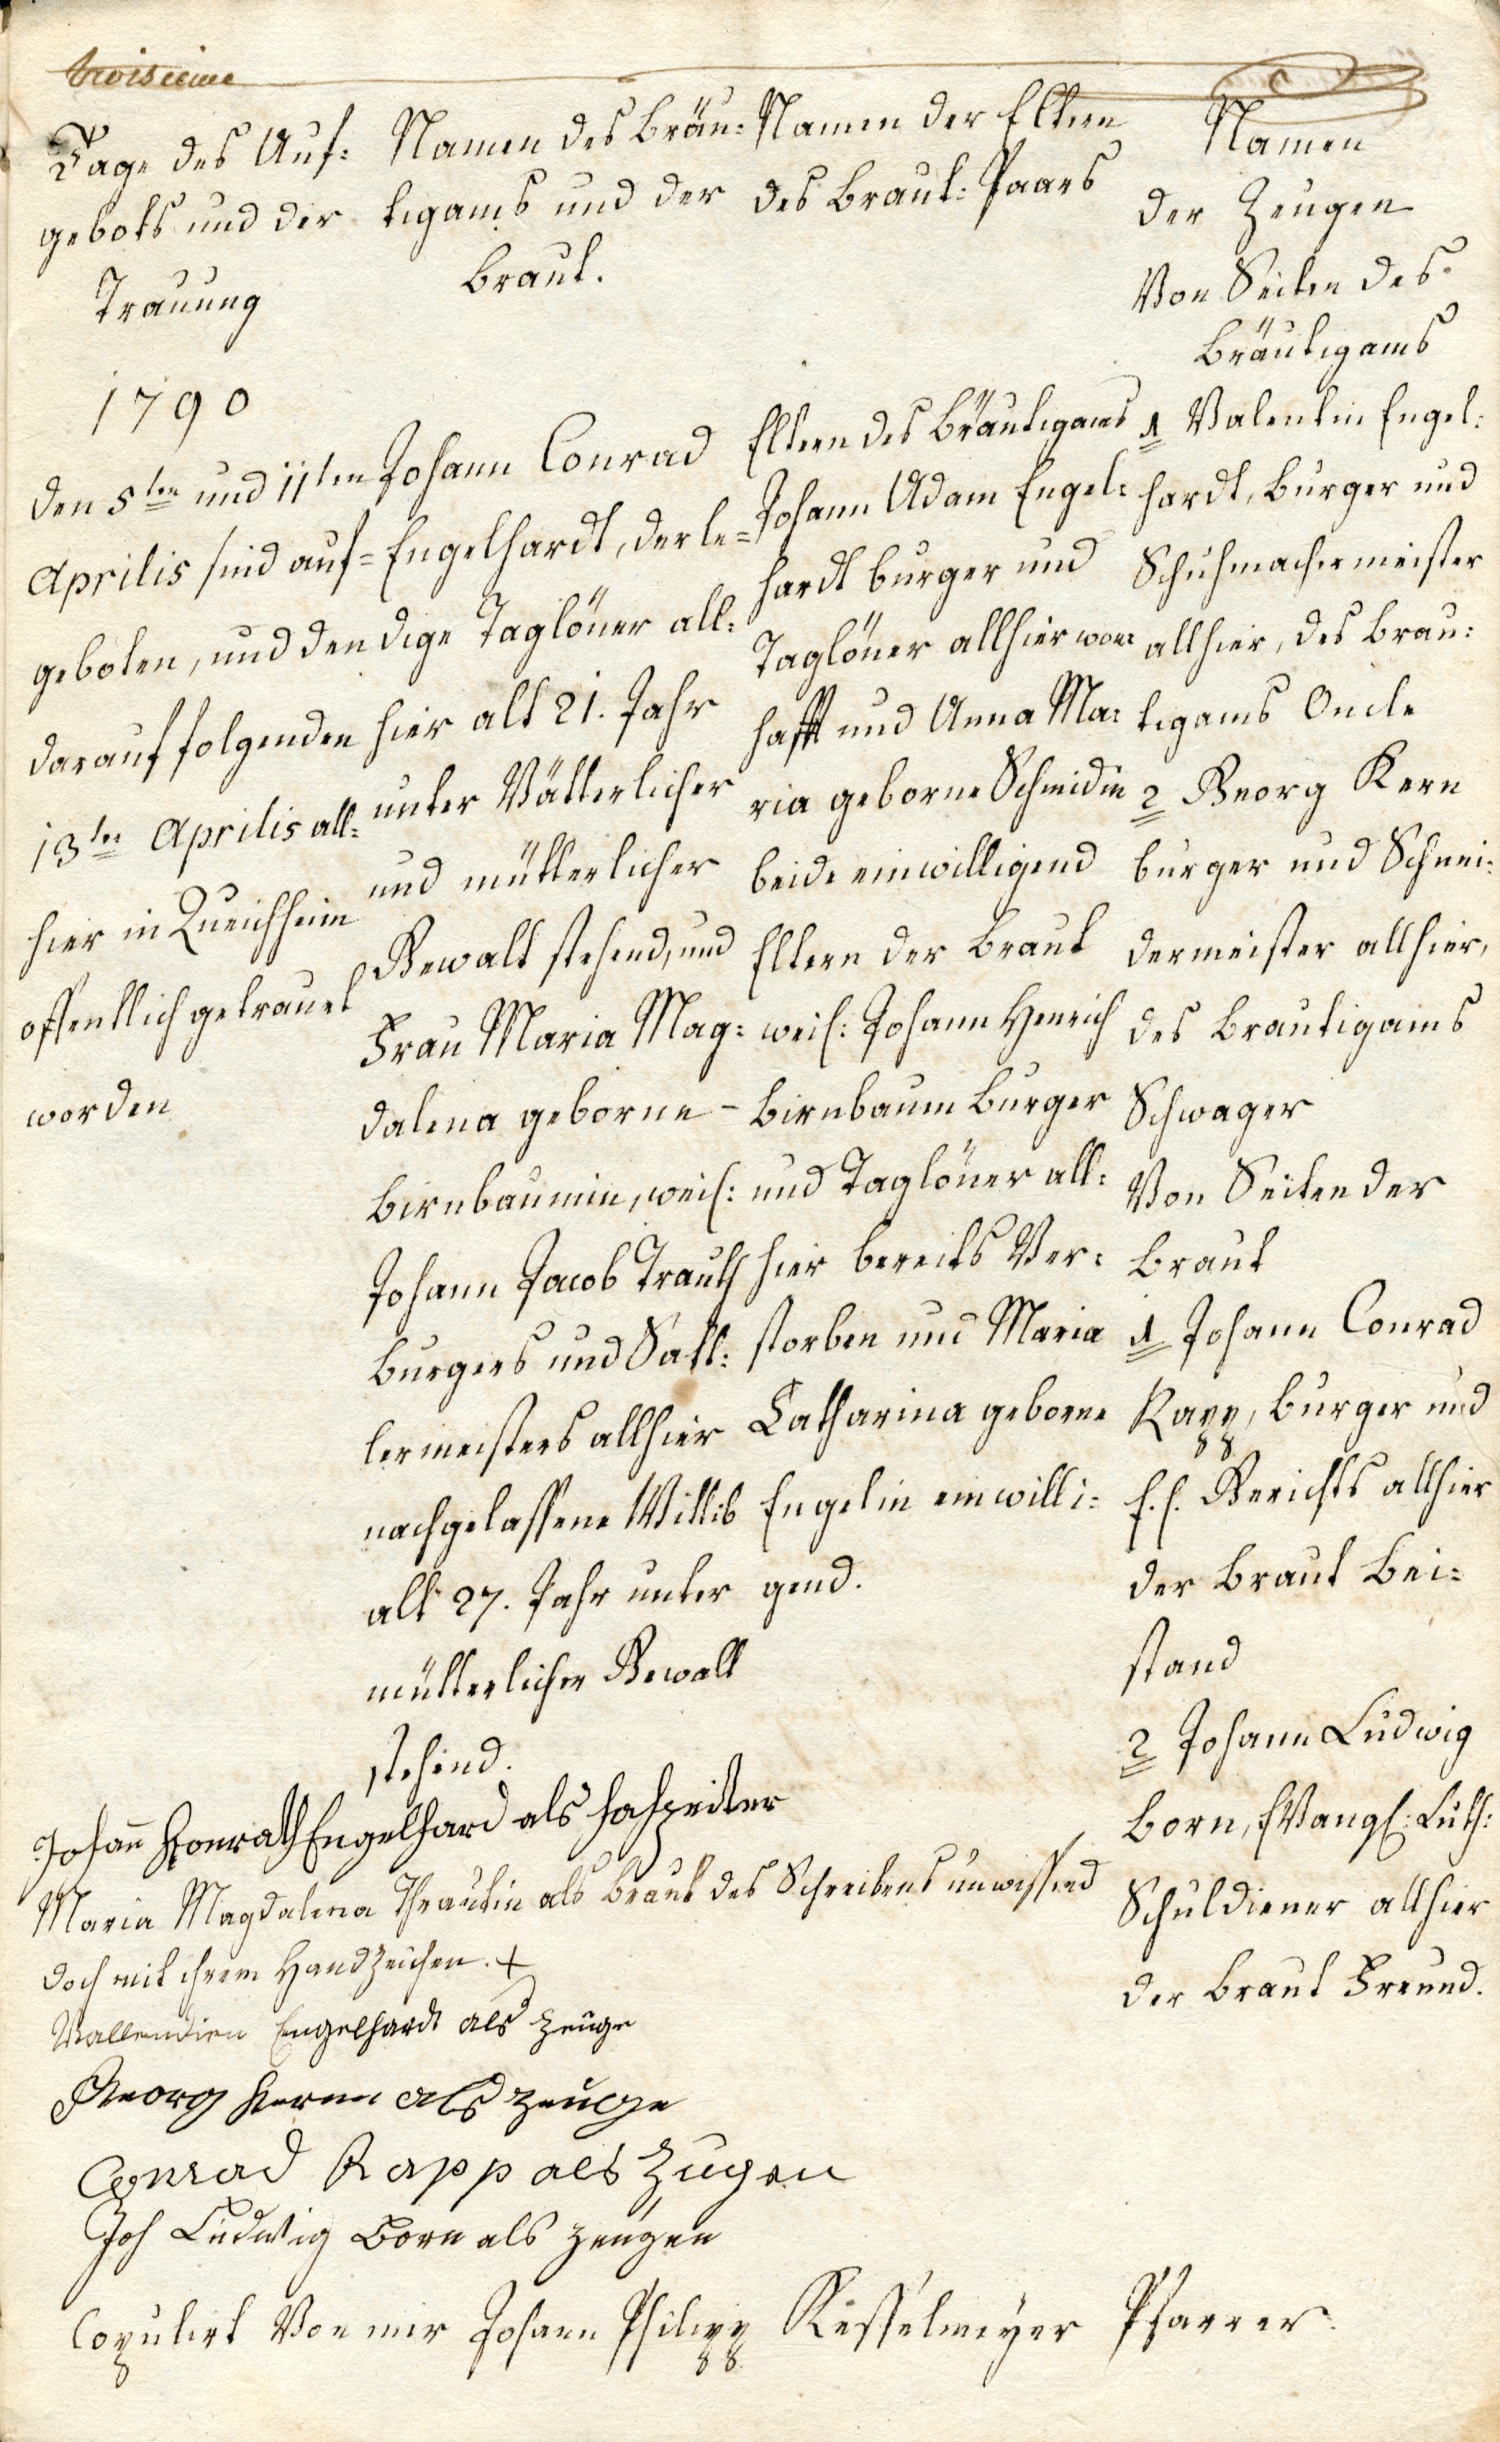 troisieme
Tage des Auf:
gebots und der
Trauung
1790
den 5ten und 11ten
Aprilis sind auf=
geboten, und den
darauf folgenden
13ten Aprilis all=
hier in Queichheim
offentlich getrauet
worden
Namen des Bräu:
tigams und der
Braut.
Johann Conrad
Engelhardt, der le=
dige Taglöner all:
hier alt 21. Jahr
unter Vätterlicher
und mütterlicher
Gewalt stehend, und
Frau Maria Mag:
dalena geborne -
Birnbaumin, weil:
Johann Jacob Trauth
Burgers und Satt:
lermeisters allhier
nachgelassene Wittib
alt 27. Jahr unter
mütterlicher Gewalt
stehend.
Namen der Eltern
des Braut: Paars
Eltern des Bräutigams
Johann Adam Engel:
hardt burger und
Taglöner allhier won:
hafft und Anna Ma:
ria geborne Schmidin
beide einwilligend
Eltern der Braut
weil: Johann Henrich
Birnbaum Burger
und Taglöner all:
hier bereits Ver:
storben und Maria
Catharina geborne
Engelin einwilli:
gend.
Namen
der Zeugen
Von Seiten des
Bräutigams
1 Valentin Engel:
hardt, Burger und
Schuhmachermeister
allhier, des Brau:
tigams Oncle
2 Georg Kern
burger und Schnei:
dermeister allhier,
des Brautigams
Schwager
Von Seiten der
Braut
1 Johann Conrad
Rapp, Burger und
E. E. Gerichts allhier
der Braut Bei:
stand
2 Johann Ludwig
Born, EVangl: Luth:
Schuldiener allhier
der Braut Freund.
Johañ Konrath Engelhard als hochzeiter
Maria Magdalena Thrautin als Braut des Schreibens unwissend
doch mit ihrem Handzeichen. +
Vallendien Engelhardt als Zeuge
Georg Kernn als zeuge
Conrad Rapp als Zugen
Joh Ludwig Born als zeugen
Copulirt Von mir Johann Philipp Kesselmeyer Pfarrer.